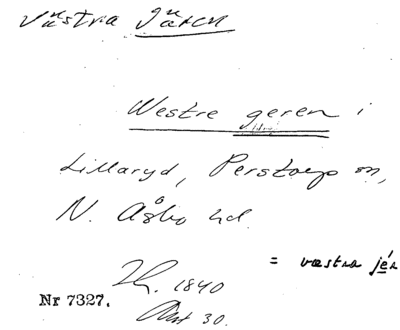 Västra Jären
Westre geren i
Lillaryd, Perstorp sn,
N. Åsbo hd.
= væstra jér
Lh. 1840
Nr 7327.
Akt 30.